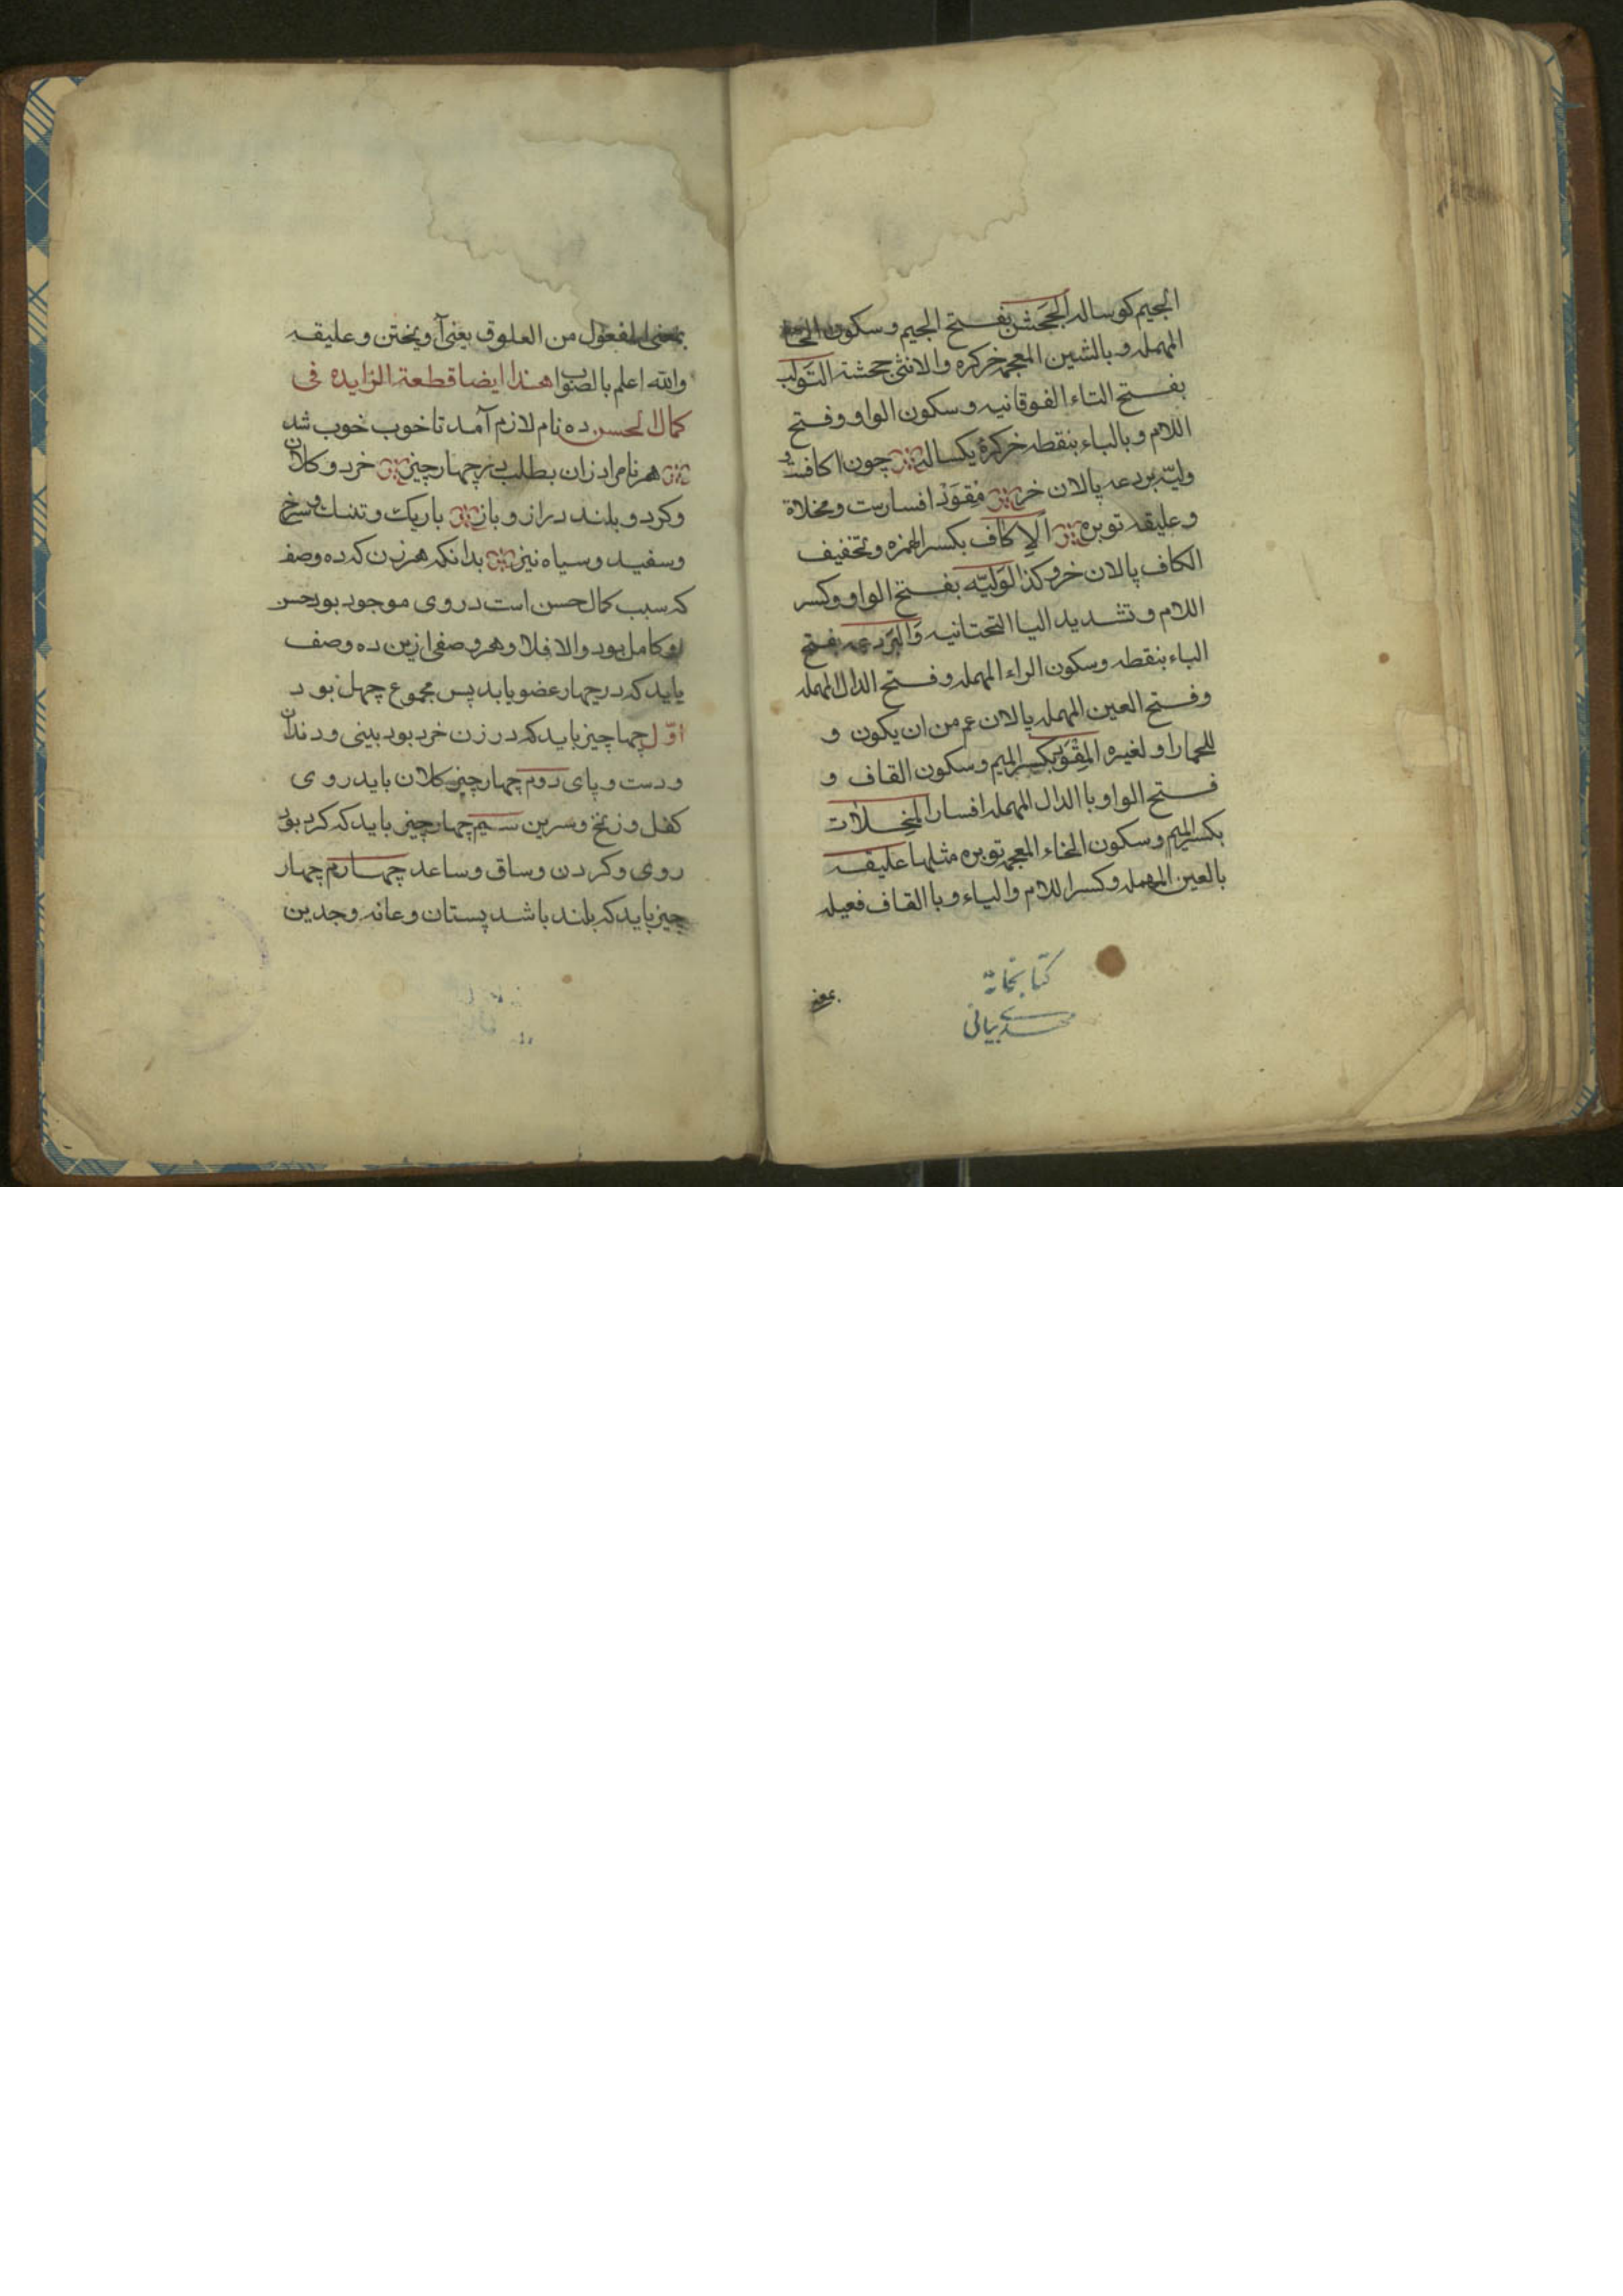 الجیم کوساله الجَحش بفتح الجیم و سکون الحاء
المهمله و بالشین المعجمه خرکره والانثی جحشة التَولَب
بفتح التاء الفوقانیه و سکون الواو و فتح
اللام و بالباء بنقطه خرکرهٔ یکساله چون اکافست و
ولیّه بردعه پالان خر مِقوَدْ افسارست و مخلاة
و علیقه توبره الاِکاف بکسر الهمزه و تخفیف
الکاف پالان خر وکذا لوَلیّه بفتح الواو وکسر
اللام و تشدید الیا التحتانیه وَالبَردعه بفتح
الباء بنقطه و سکون الراء المهمله و فتح الدال المهمله
و فتح العین المهمله پالان عم من ان یکون و
للحمار او لغیره المِقوَد بکسر المیم و سکون القاف و
فتح الواو باالدال المهمله افسار المخلات
بکسر المیم و سکون الخاء المعجمه توبره مثلها علیقه
بالعین المهمله وکسر اللام والیاء و باالقاف فعیله
کتابخانه
مهدی بیانی
بمعنی المفعول من العلوق یعنی آویختن و علیقه
والله اعلم بالصواب هذا ایضا قطعة الزایده فی
کمال الحسن ده نام لازم آمد تا خوب خوب شد
هر نام را ز زان بطلب در چهار چیز خرد و کلان
وکرد و بلند دراز و باز باریک و تنک و سرخ
وسفید و سیاه نیز بدانکه هر زن که ده وصف
که سبب کمال حسن است در وی موجود بود حسن
او کامل بود والا فلا و هر وصفی ازین ده وصف
یاید که در چهار عضو یابد پس مجموع چهل بود
اوّل چها چیز باید که در زن خرد بود بینی و دندان
و دست و پای دوم چهار چیز کلان باید روی
کفل و زنخ و سرین سیم چهار چیز باید که کرد بود
روی وکردن و ساق و ساعد چهارم چهار
چیز باید که بلند باشد پستان و عانه و جدین